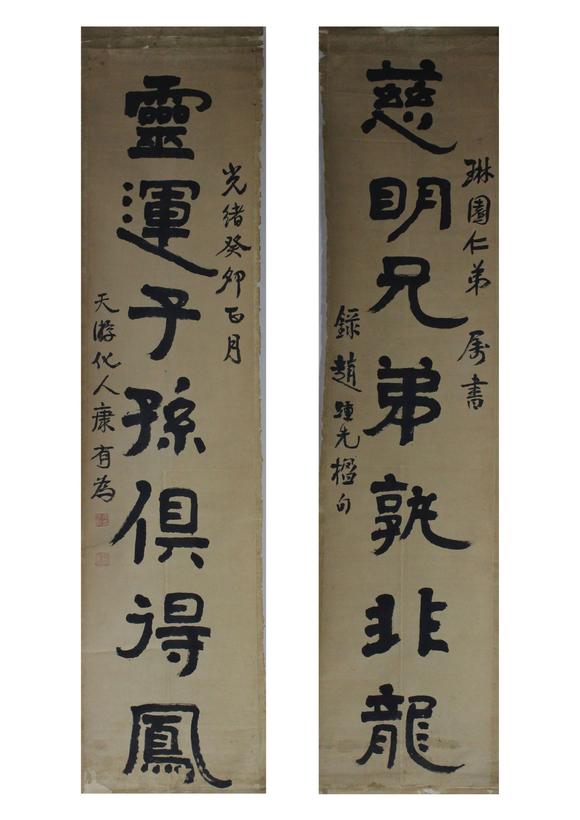 慈明兄弟孰非龍
琳園仁弟 属書
録趙𢹂先楹句
靈運子孫俱得鳳
光緒癸卯正月
天游化人康有為